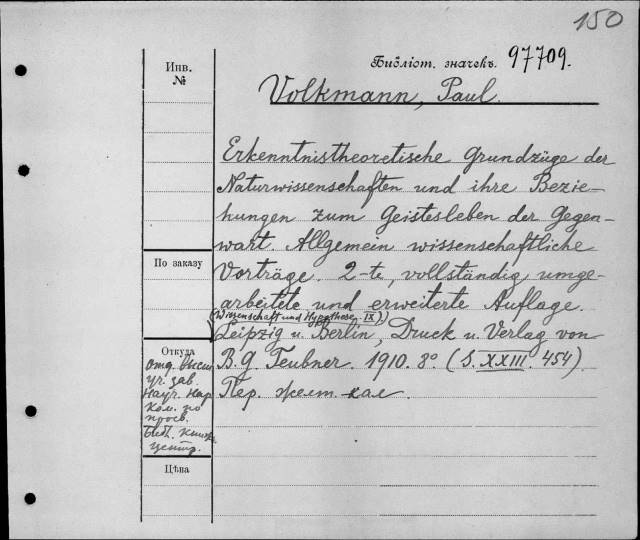 150
Инв.
№
Библіот. значекъ. 97709.
Volkmann, Paul.
Erkenntnistheoretische Grundzüge der
Naturwissenschaften und ihre Bezie-
hungen zum Geistesleben der Gegen-
wart. Allgemein wissenschaftliche
По заказу
Vorträge. 2-te, vollständig umge-
arbeitete und erweiterte Auflage.
(Wissenschaft und Hypothese. IX)
Leipzig u. Berlin, Druck u. Verlag von
Откуда
B. G. Teubner. 1910. 8° (S. XXIII. 454).
Отд. Высш
уч. зав.
Пер. желт. кал.
Науч. Нар
Ком. по
просв.
Библ.
центр.
Цѣна